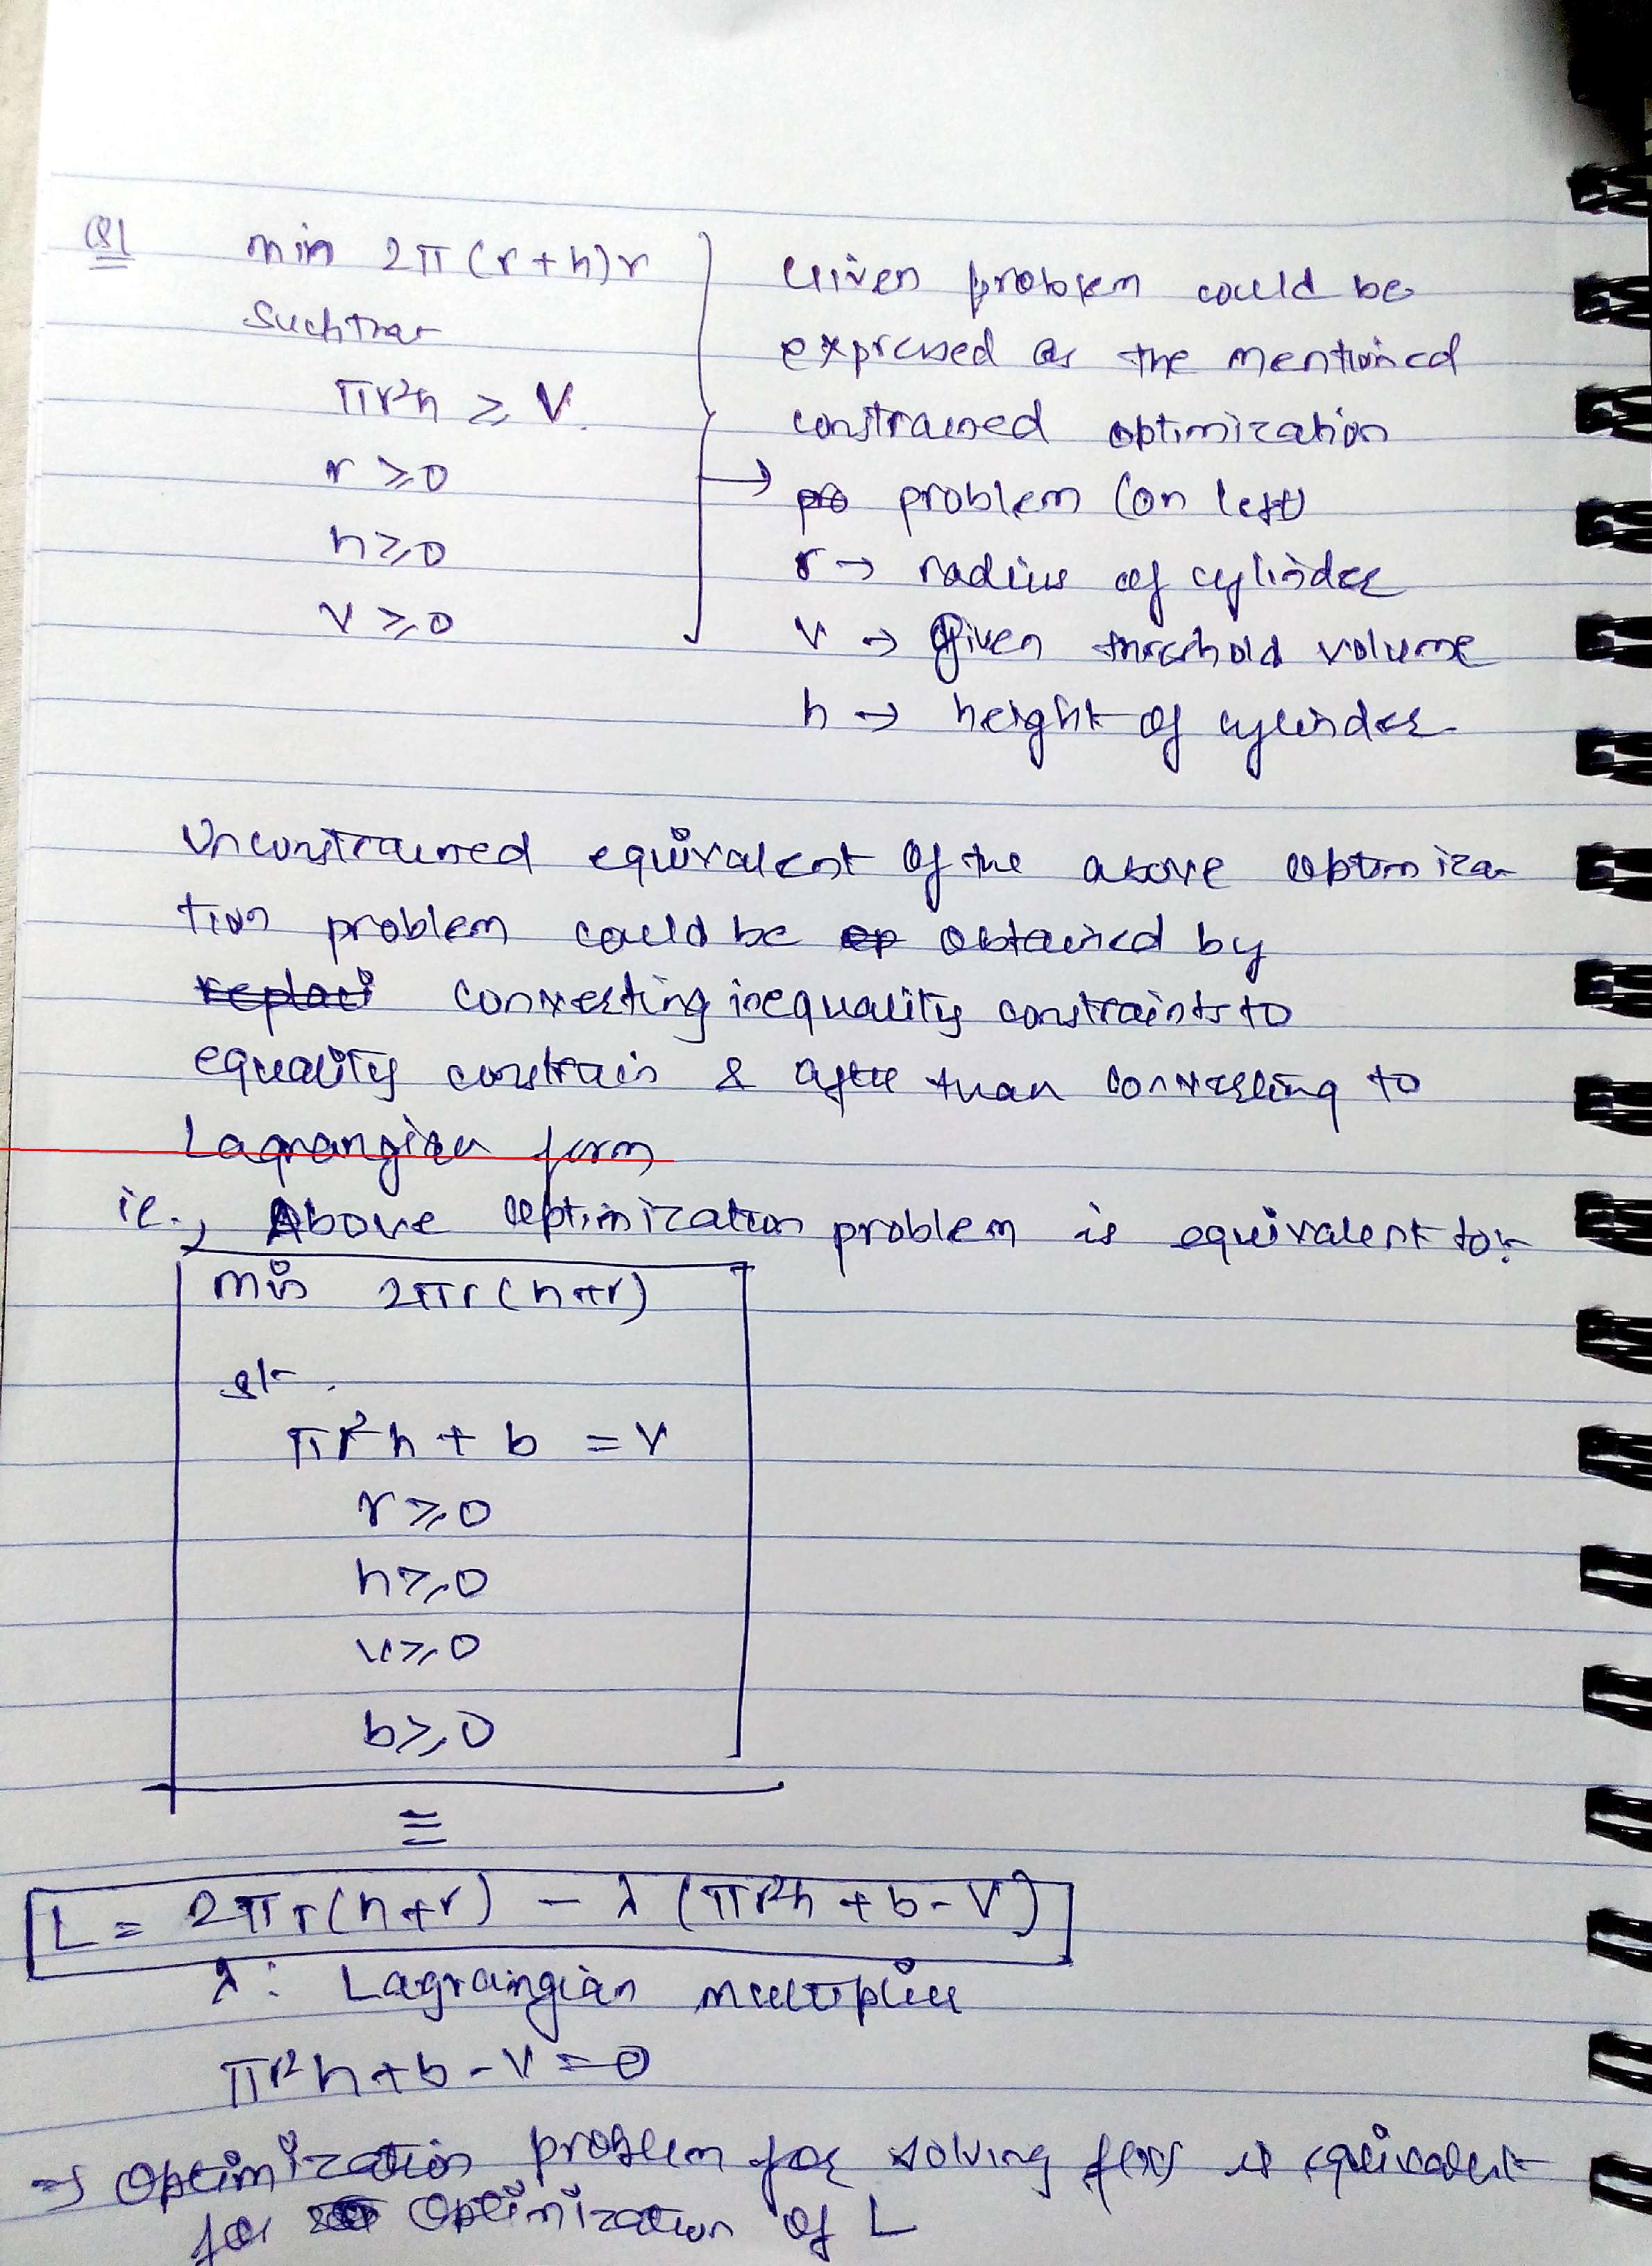 Q1 min 2π(r+h)r
Such that
πr²h ≥ V
r ≥ 0
h ≥ 0
V ≥ 0
Given problem could be
expressed as the mentioned
constrained optimization
→ problem (on left)
r → radius of cylinder
V → given threshold volume
h → height of cylinder.
Unconstrained equivalent of the above optimiza
tion problem could be obtained by
converting inequality constraints to
equality constrain & after than converting to
Lagrangian form
ie., Above optimization problem is equivalent to:-
min 2πr(h+r)
s/t.
πr²h + b = V
r ≥ 0
h ≥ 0
V ≥ 0
b ≥ 0
≡
L = 2πr(h+r) - λ(πr²h + b - V)
λ: Lagrangian multiplier
πr²h + b - V = 0
⇒ Optimization problem for solving for is equivalent
for Optimization of L